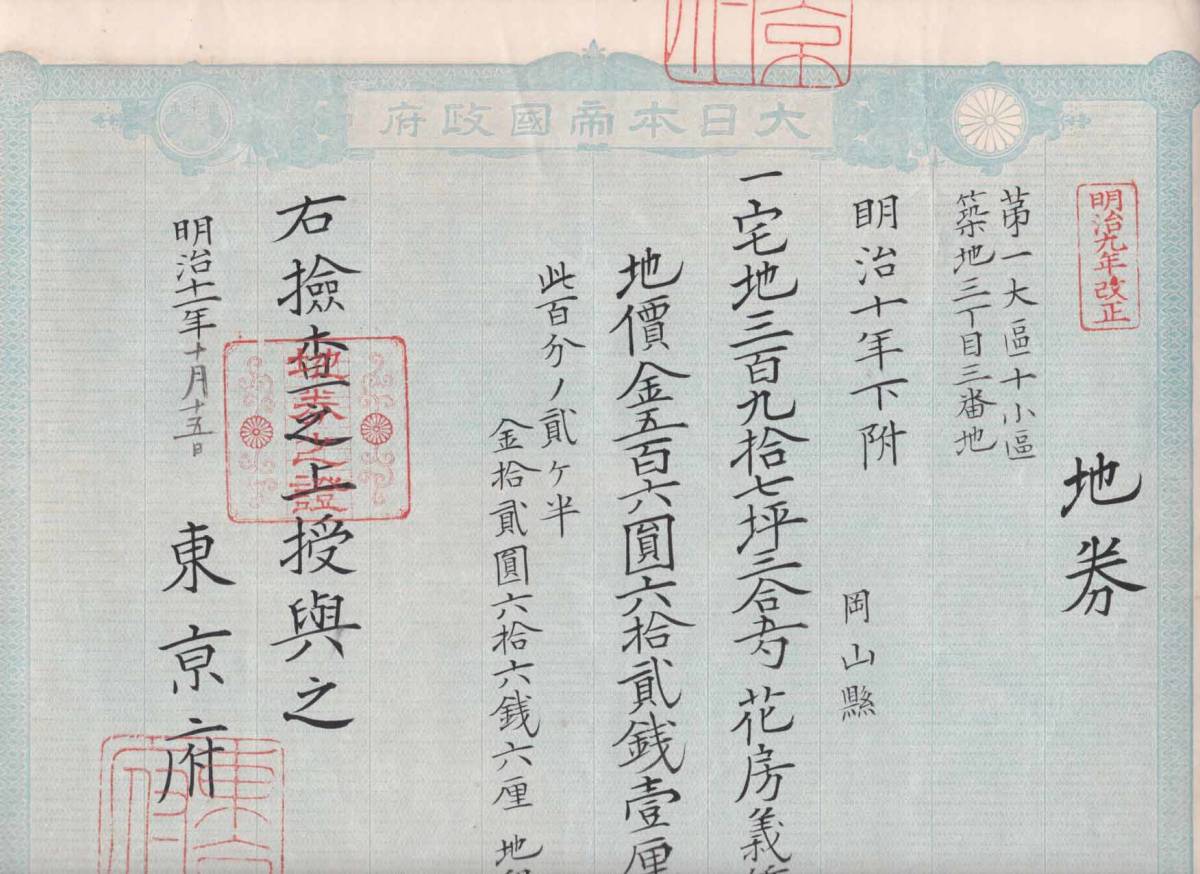 大日本帝國政府
明治九年改正
地券
第一大區十小區
築地三丁目三番地
明治十年下附
岡山縣
一宅地三百九拾七坪三合五勺 花房義
地價金五百六圓六拾貳銭壹厘
此百分ノ貳ヶ半
金拾貳圓六拾六銭六厘 地
右撿査之上授與之
地券之證
明治十一年十月十五日
東京府